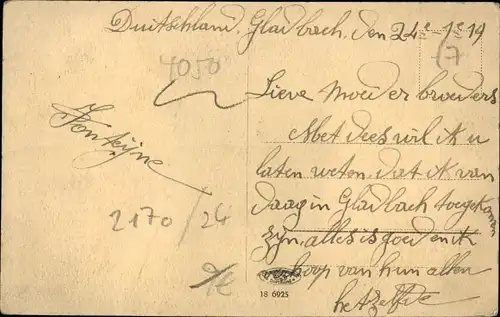 Duitschland, Gladbach, den 24e - 1e 19
4050
(7
Lieve Moeder broeders
Met dees wil ik u
laten weten, dat ik van
daag in Gladbach toegekomen
zijn, alles is goed en ik
hoop van hun allen
hetzelfde
Fonteÿne
2170/24
18 6925